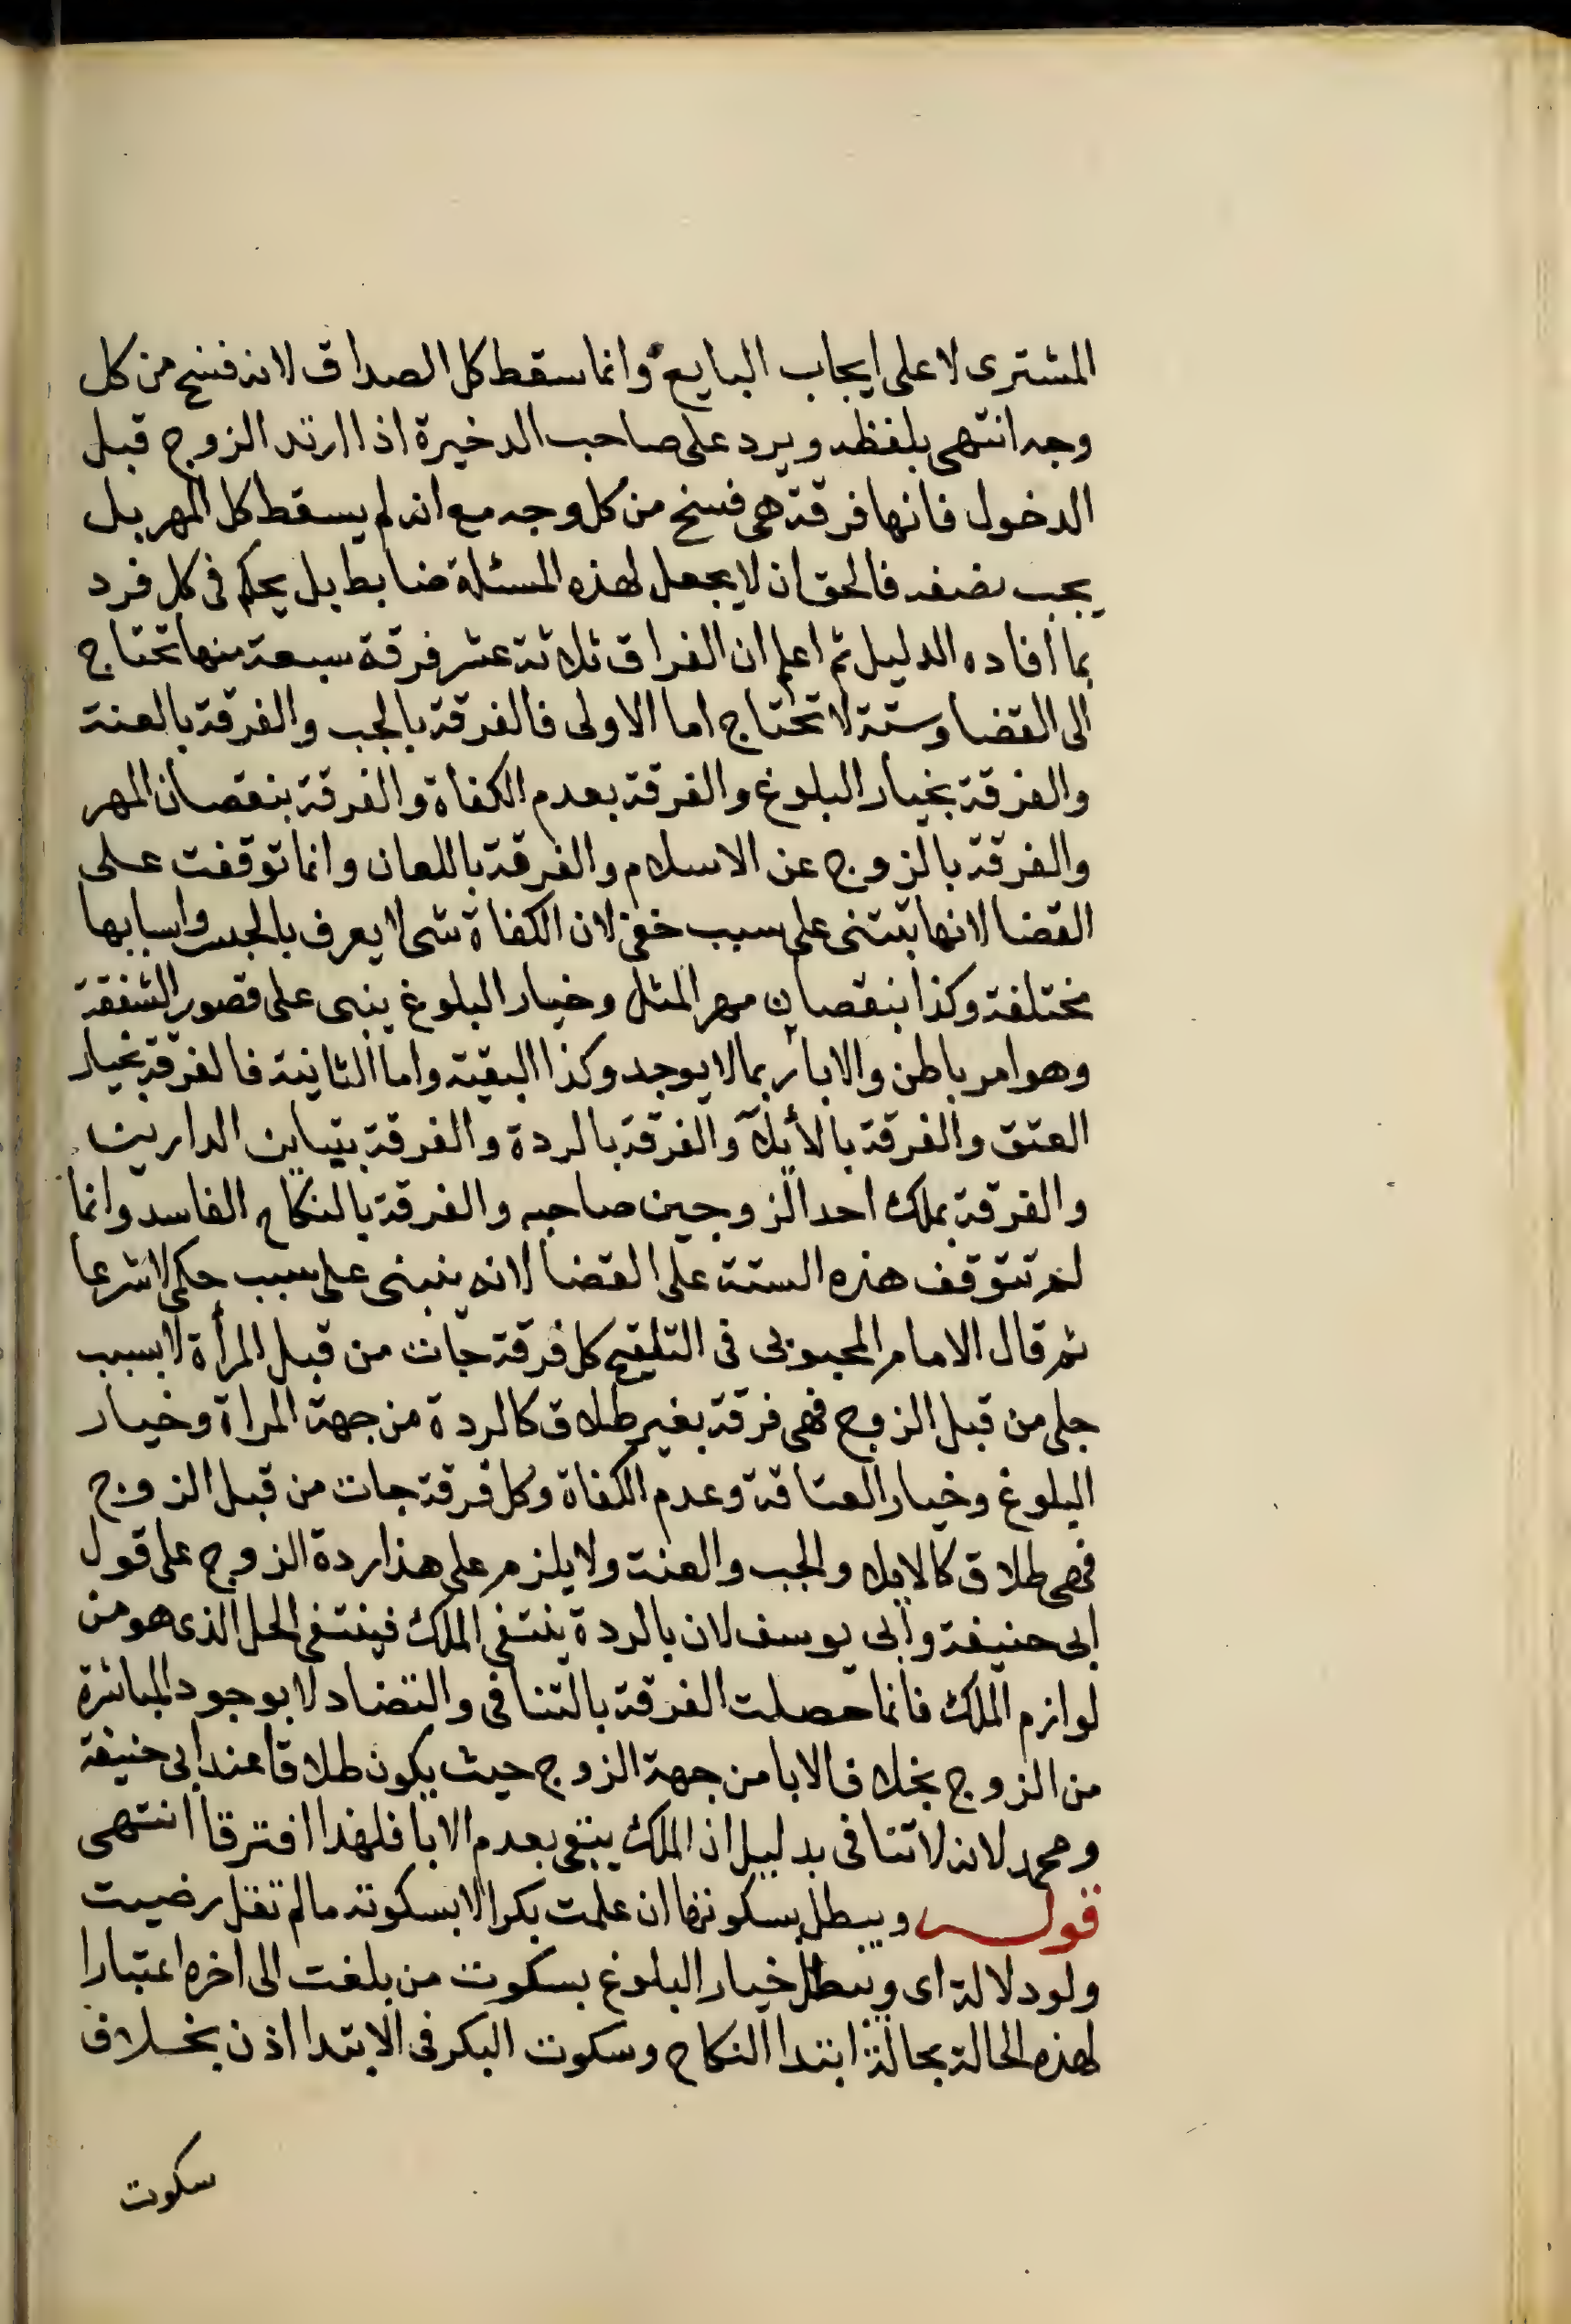 المشترى لا على ايجاب البايع وانما سقط كل الصداق لانه فسخ من كل
وجه انتهى بلفظه ويرد على صاحب الدخيرة اذا ارتد الزوج قبل
الدخول فانها فرقة هى فسخ من كل وجه مع انه لم يسقط كل المهر بل
يجب نصفه فالحق ان لا يجعل لهذه المسئلة ضابط بل يحكم فى كل فرد
بما افاده الدليل ثم اعلم ان الفراق ثلاثة عشر فرقة سبعة منها تحتاج
الى القضا وستة لا تحتاج اما الاولى فالفرقة بالجب والفرقة بالعنة
والفرقة بخيار البلوغ والفرقة بعدم الكفاة والفرقة بنقصان المهر
والفرقة بالزوج عن الاسلام والفرقة باللعان وانما توقفت على
القضا لانها تبتنى على سبب خفى لان الكفاة شى لا يعرف بالحس واسبابها
مختلفة وكذا بنقصان مهر المثل وخيار البلوغ ينبى على قصور الشفقة
وهو امر باطن والابا ربما لا يوجد وكذا البقية واما الثانية فالفرقة بخيار
العتق والفرقة بالأيلآ والفرقة بالردة والفرقة بتباين الدارين
والفرقة بملك احد الزوجين صاحبه والفرقة بالنكاح الفاسد وانما
لم تتوقف هذه الستة على القضا لانه ينبنى على سبب حكى لا شرعا
ثم قال الامام المحبوبى فى التلقيح كل فرقة جات من قبل المرأة لا بسبب
جلى من قبل الزوج فهى فرقة بغير طلاق كالردة من جهة المراة وخيار
البلوغ وخيار العتاقة وعدم الكفاة وكل فرقة جات من قبل الزوج
فهى طلاق كالايلا والجب والعنة ولا يلزم على هذا ردة الزوج على قول
ابى حنيفة وابى يوسف لان بالردة ينتفى الملك فينتفى الحل الذى هو من
لوازم الملك فانما حصلت الفرقة بالتنافى والتضاد لا بوجود المباشرة
من الزوج بخلاف الابا من جهة الزوج حيث يكون طلاقا عند ابى حنيفة
ومحمد لانه لا تنافى بدليل اذ الملك يبقى بعدم الابا فلهذا افترقا انتهى
قوله ويبطل بسكوتها ان علمت بكرا لا بسكوته مالم تقل رضيت
ولو دلالة اى ويبطل خيار البلوغ بسكوت من بلغت الى اخره اعتبارا
لهذه الحالة بحالة ابتدا النكاح وسكوت البكر فى الابتدا اذن بخلاف
سكوت